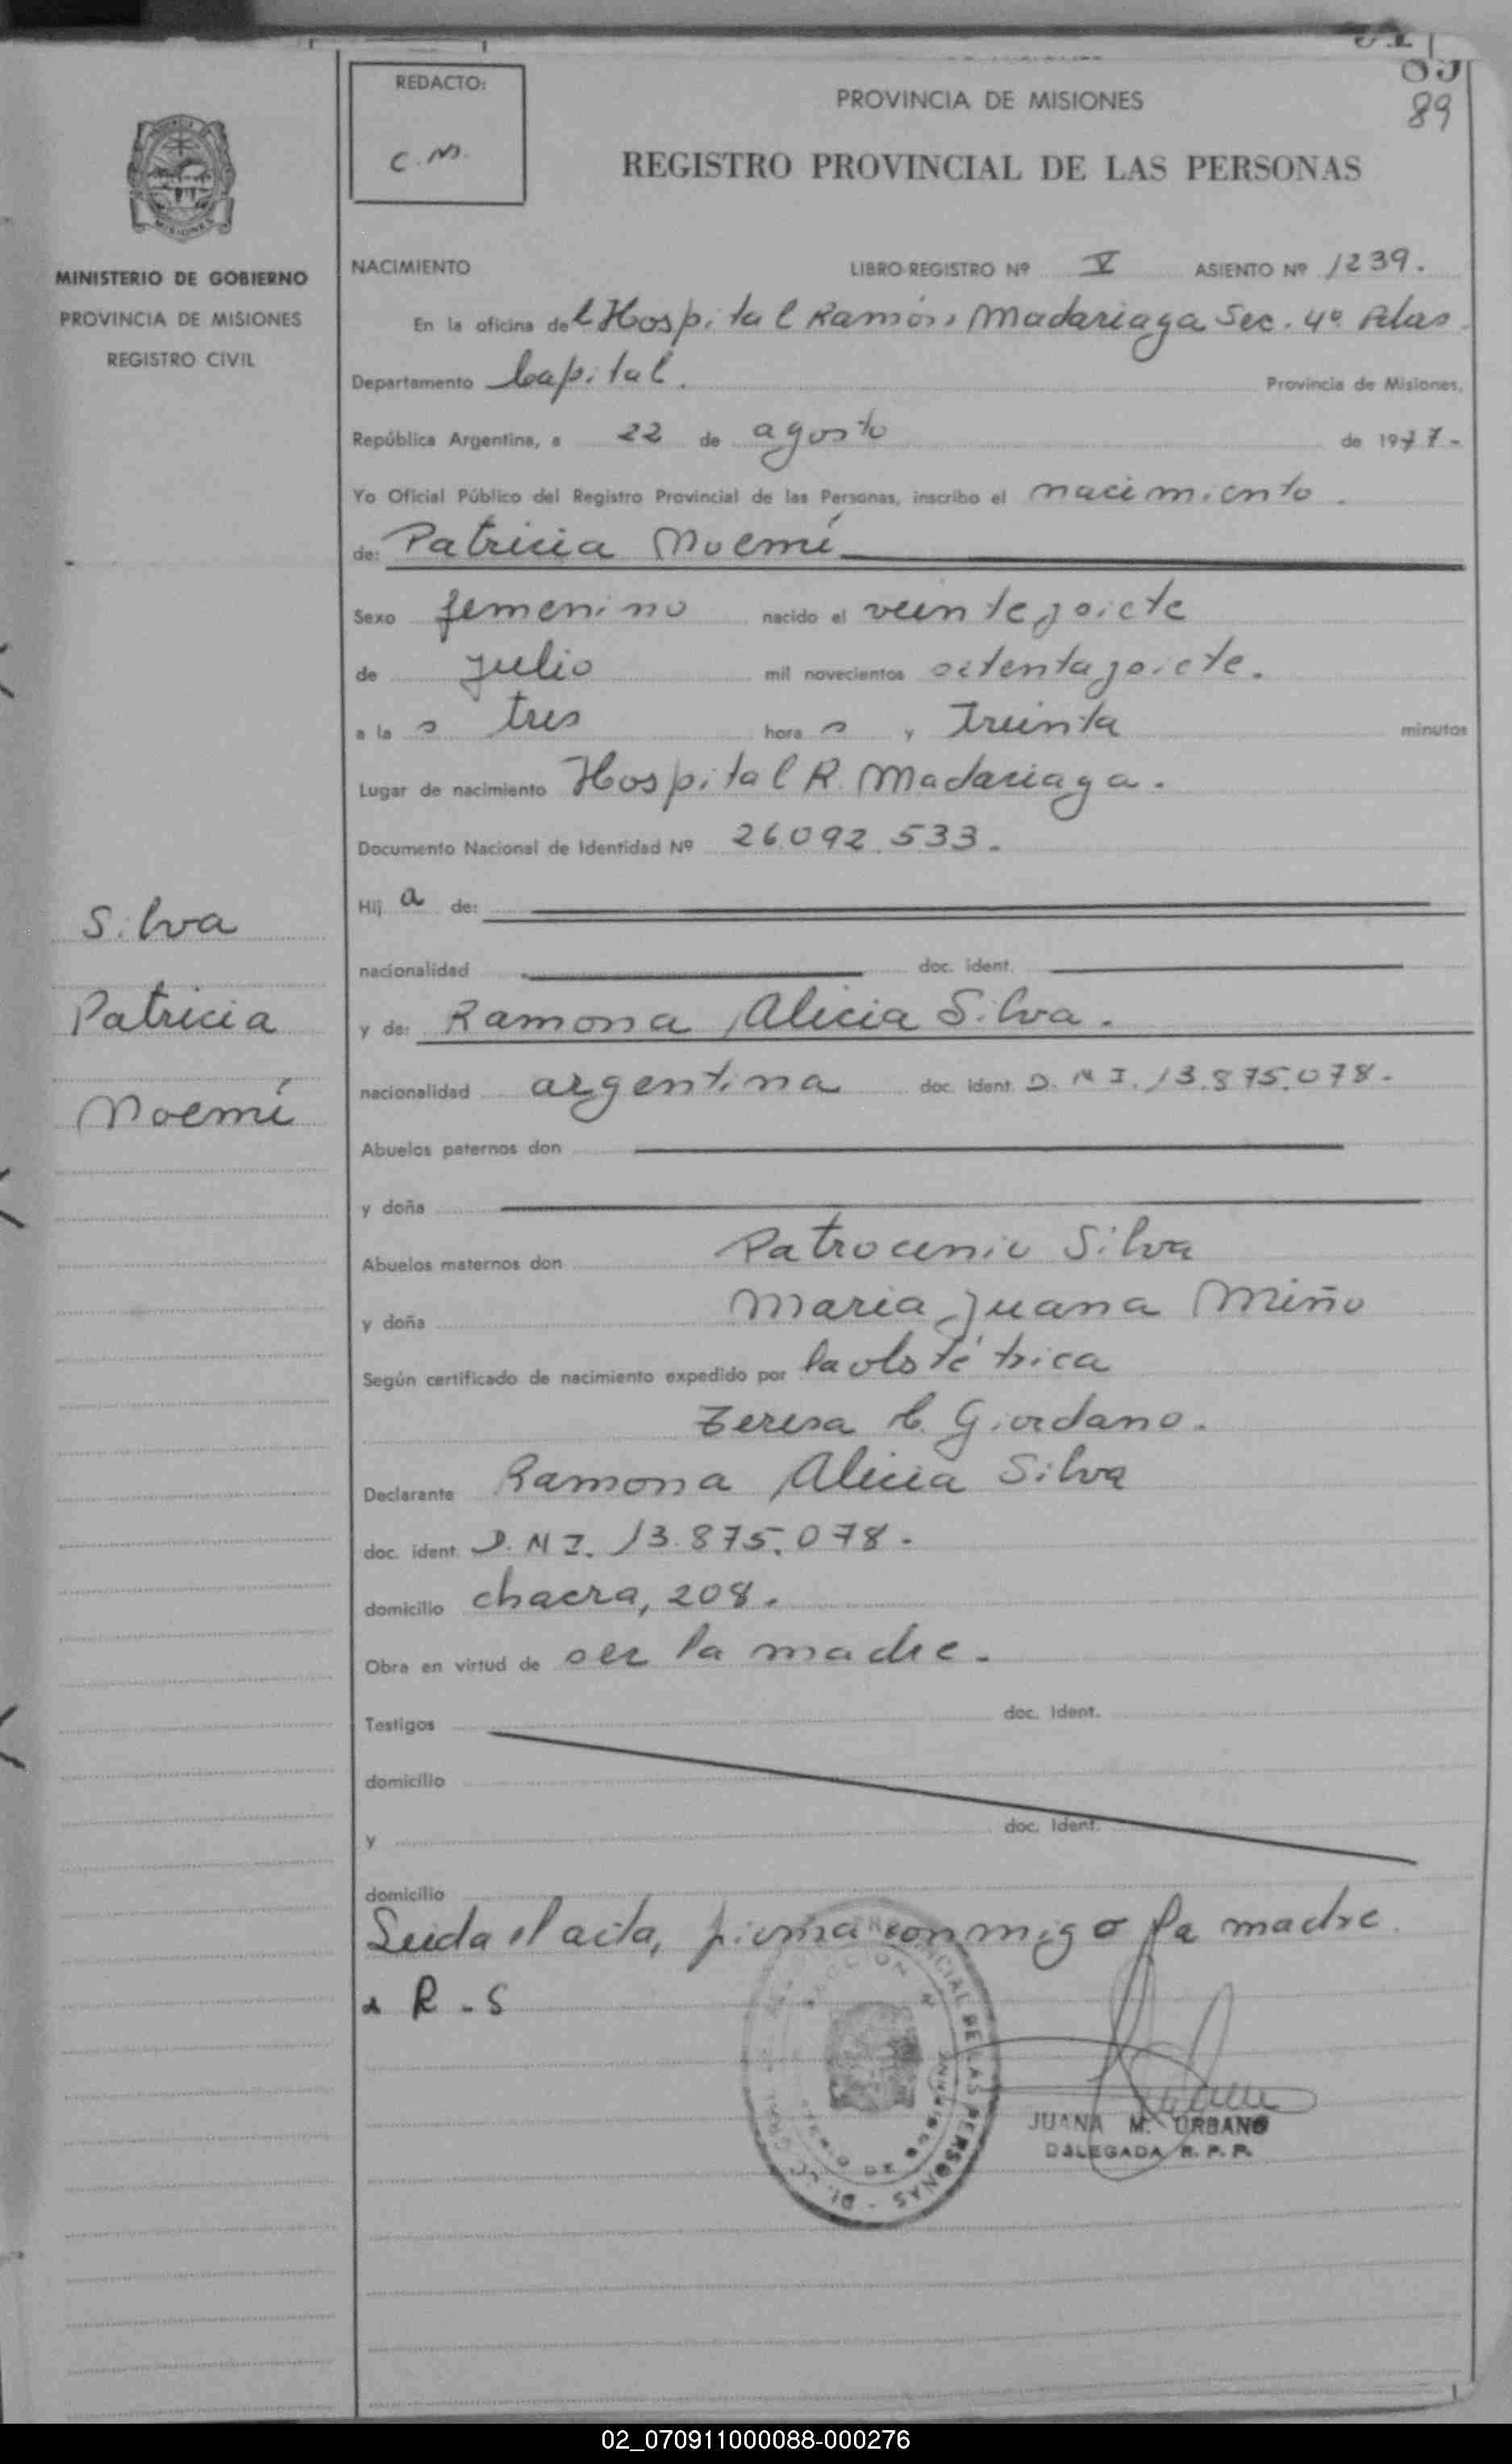 89
REDACTO:
C. M.
PROVINCIA DE MISIONES
REGISTRO PROVINCIAL DE LAS PERSONAS
MINISTERIO DE GOBIERNO
PROVINCIA DE MISIONES
REGISTRO CIVIL
NACIMIENTO LIBRO-REGISTRO Nº V ASIENTO Nº 1239.
En la oficina del Hospital Ramón Madariaga Sec. 4º Pdas
Departamento Capital. Provincia de Misiones,
República Argentina, a 22 de agosto de 1977-
Yo Oficial Público del Registro Provincial de las Personas, inscribo el nacimiento.
de: Patricia Noemí
Sexo femenino nacido el veintesiete
de Julio mil novecientos setentasiete.
a la s tres hora s y Treinta minutos
Lugar de nacimiento Hospital R. Madariaga.
Documento Nacional de Identidad Nº 26.092.533.
Hij a de:
nacionalidad doc. ident.
y de: Ramona Alicia Silva.
nacionalidad argentina doc. ident. D.N.I. 13.875.078-
Abuelos paternos don
y doña
Abuelos maternos don Patrocinio Silva
y doña Maria Juana Miño
Según certificado de nacimiento expedido por la obstétrica
Teresa C. Giordano.
Declarante Ramona Alicia Silva
doc. ident. D.N I. 13.875.078.
domicilio chacra, 208.
Obra en virtud de ser la madre.
Testigos doc. Ident.
domicilio
y doc. Ident.
domicilio
Leida el acta, firma conmigo la madre.
R-S
Silva
Patricia
Noemí
JUANA M. URBANO
DELEGADA R. P. P.
02_070911000088-000276